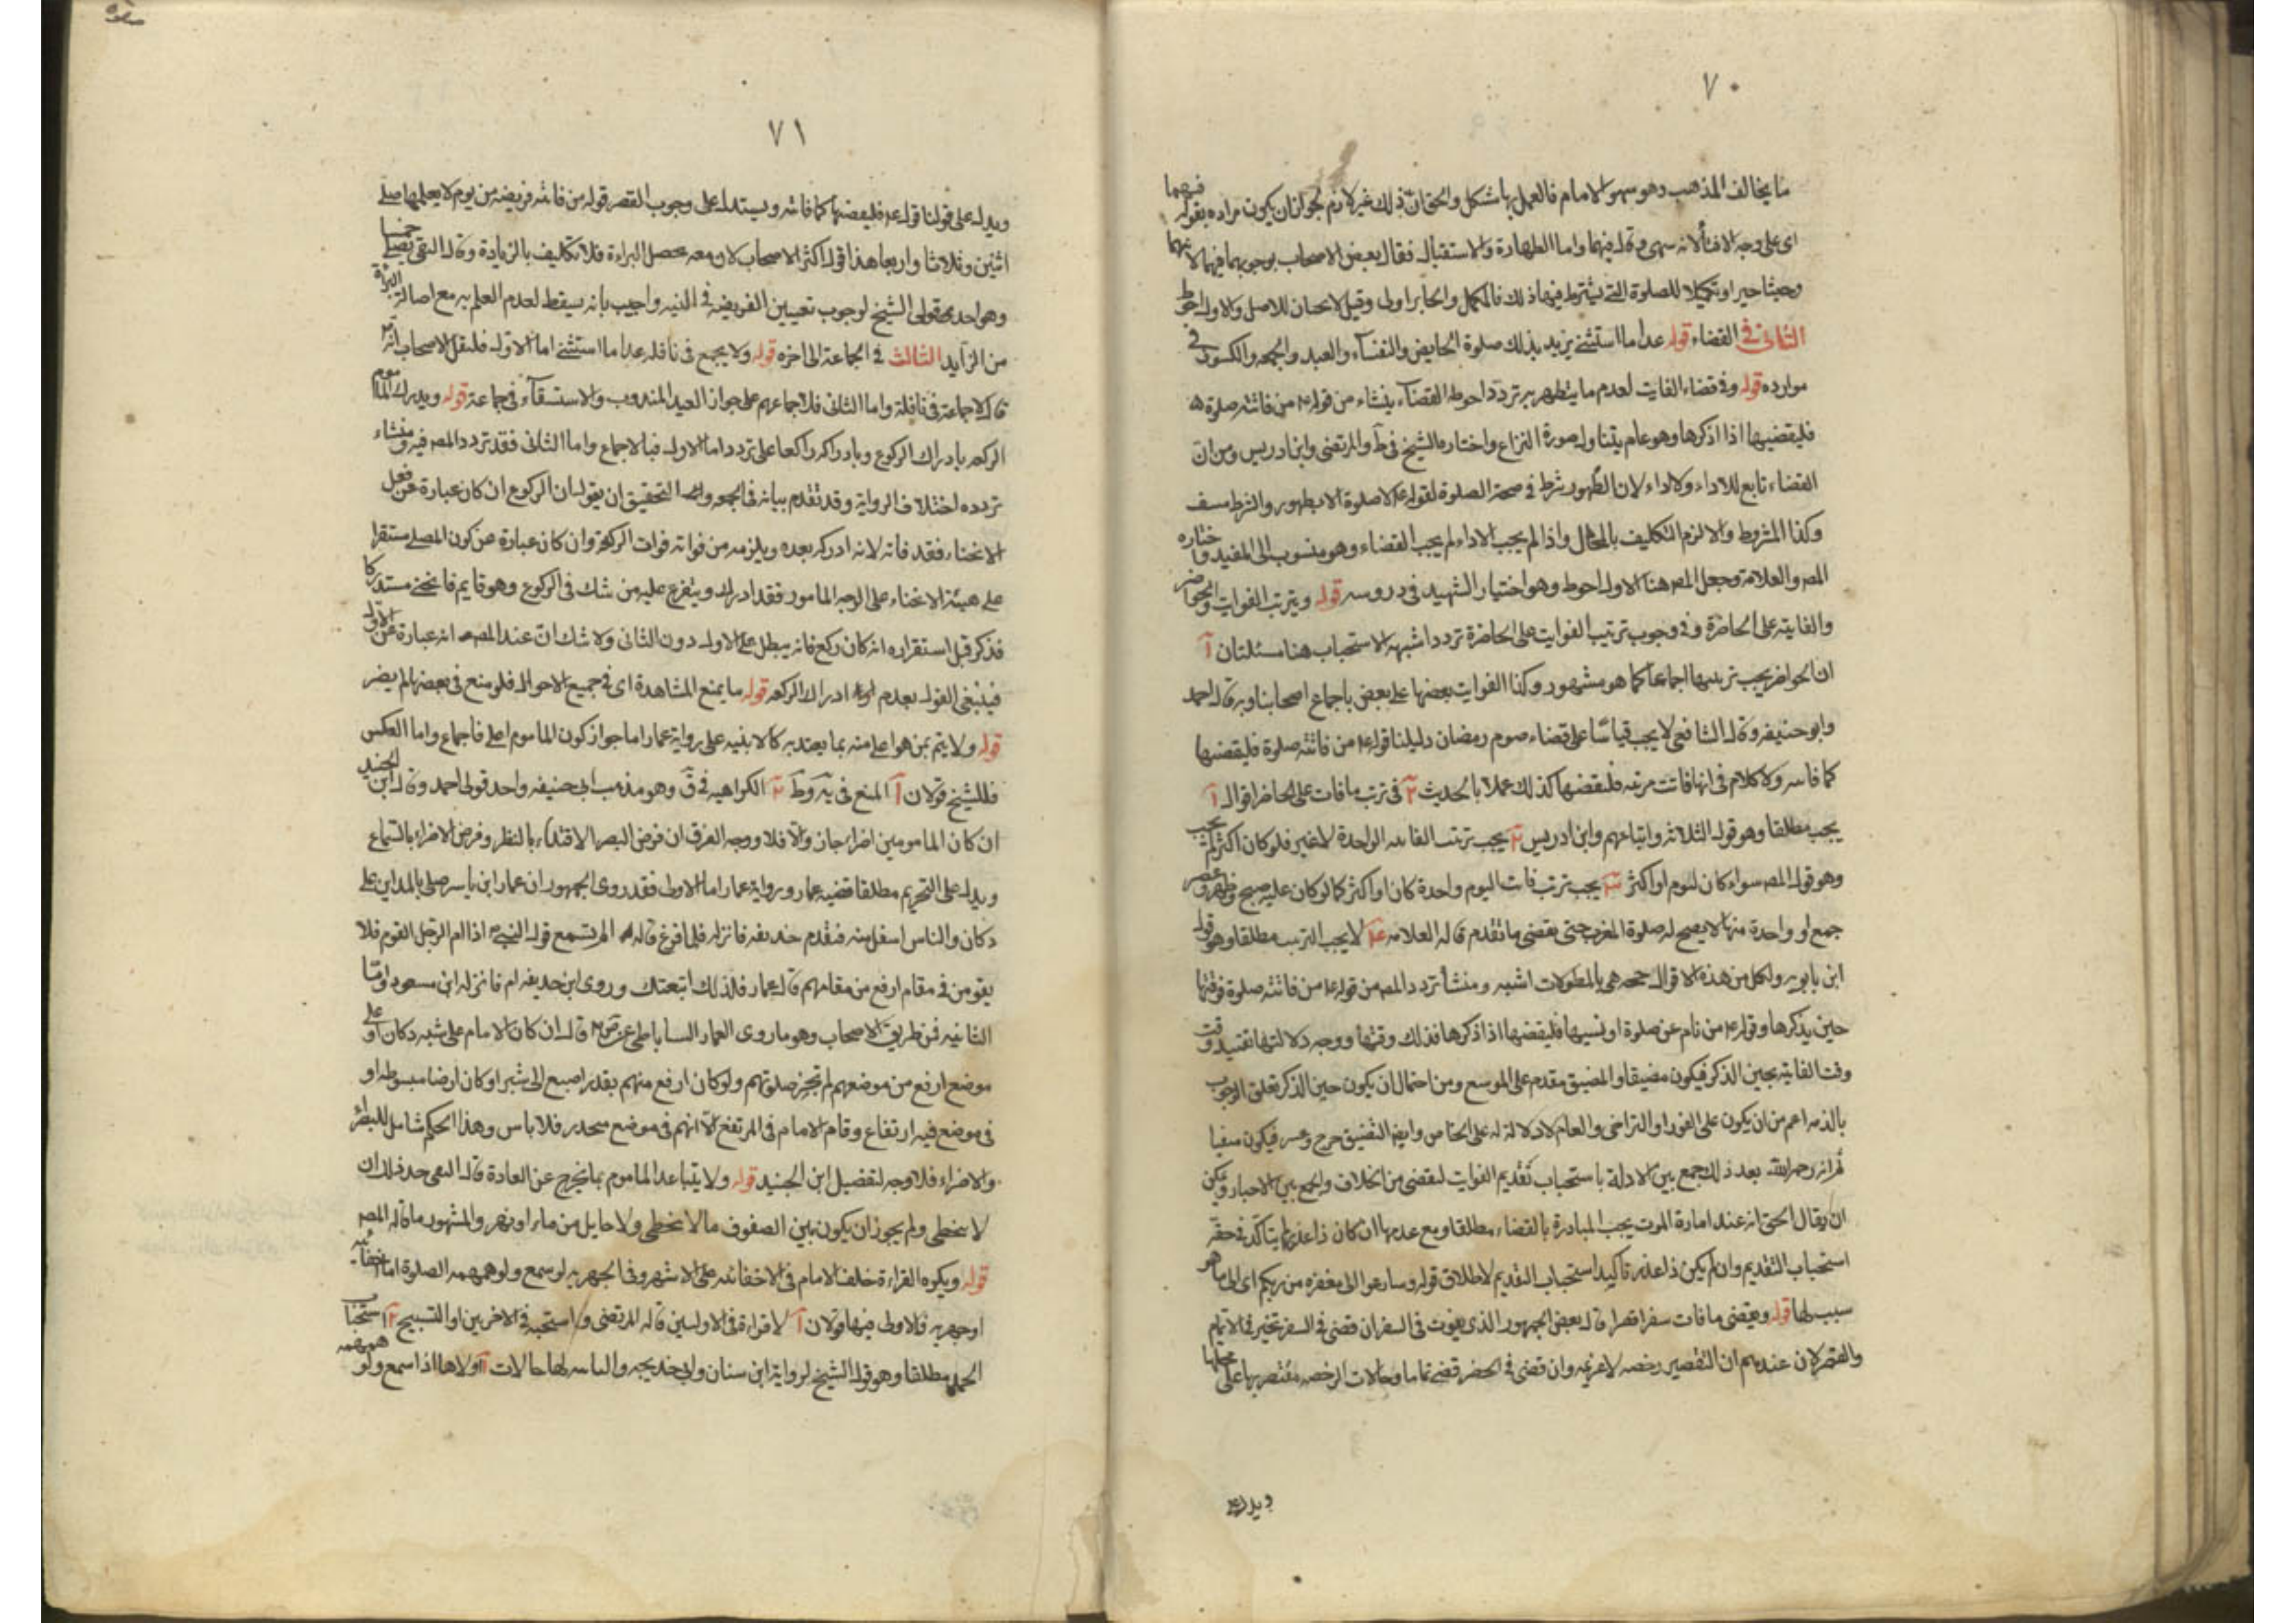 ٧٠
ما يخالف المذهب وهو سهو الامام فالعمل بها اشكل والحق ان ذلك غير لازم لجواز ان يكون مراده بقوله فيهما
اى على وجه الانه سهى وقال فيهما واما الطهارة والاستقبال فقال بعض الاصحاب بوجوبهما فيهما لانهما
للصلوة التى يشترط فيها ذلك فالمكمل والجابر اولى وقيل لا يجبان للاصل والاول احوط
الثانى فى القضاء قوله عدا ما استثنى يريد بذلك صلوة الحايض والنفساء والعيد والجمعه والكسوف فى
موارده قوله وفى قضاء الفايت لعدم ما يتطهر به تردد احوطه القضاء ينشاء من قوله ع من فاتته صلوة
فليقضيها اذا ذكرها وهو عام يتناول صورة النزاع واختاره الشيخ فى ط والمرتضى وابن ادريس ومن ان
القضاء تابع للاداء ولا اداء لان الطهور شرط فى صحة الصلوة لقوله ع لا صلوة الا بطهور والشرط منتف
وكذا المشروط والا لزم التكليف بالمحال واذا لم يجب الاداء لم يجب القضاء وهو منسوب الى المفيد واختاره
المص والعلامة وجعل المص هنا الاول احوط وهو اختيار الشهيد فى دروسه قوله ويترتب الفوايت والحواضر
والفايته على الحاضرة وفى وجوب ترتيب الفوايت على الحاضرة تردد اشبهه الاستحباب هنا مسئلتان آ
ان الحواضر يجب ترتيبها اجماعا كما هو مشهور وكذا الفوايت بعضها على بعض باجماع اصحابنا وبه قال احمد
وابو حنيفه وقال الشافعى لا يجب قياسا على قضاء صوم رمضان دليلنا قوله ع من فاتته صلوة فليقضيها
كما فاته ولا كلام فى انها فاتت مرتبه فليقضها كذلك عملا بالحديث ٢ فى ترتب ما فات على الحاضر اقوال آ
يجب مطلقا وهو قول الثلاثه واتباعهم وابن ادريس ٢ يجب ترتيب الفايته الواحدة لا غير فلو كان اكثر لم يجب
وهو قول المص سواء كان ليوم او اكثر ٣ يجب ترتب فات اليوم واحدة كان او اكثر كما لو كان عليه صبح وظهر وعصر
جمع او واحدة منها لا يصح له صلوة المغرب حتى يقضى ما تقدم قاله العلامه ٤ لا يجب الترتيب مطلقا وهو قول
ابن بابويه ولكل من هذه الاقوال حجه هى بالمطولات اشبه ومنشأ تردد المص من قوله ع من فاتته صلوة فوقتها
حين يذكرها وقوله ع من نام عن صلوة او نسيها فليقضها اذا ذكرها فذلك وقتها ووجه دلالتها تقييد وقت
وقت الفايته بحين الذكر فيكون مضيقا والمضيق مقدم على الموسع ومن احتمال ان يكون حين الذكر تعلق الوجوب
بالذمه اعم من ان يكون على الفور او التراخى والعام لا دلالة له على الخاص وايضا التضييق حرج وعسر فيكون منفيا
ثم انه رحمه الله بعد ذلك جمع بين الادلة باستحباب تقديم الفوايت ليقضى من الخلاف والجمع بين الاخبار ويمكن
ان يقال الحق انه عند امارة الموت يجب المبادرة بالقضاء مطلقا ومع عدمها ان كان ذا عذر لم يتاكد فى حقه
استحباب التقديم وان لم يكن ذا عذر تاكيد استحباب التقديم لاطلاق قوله وسارعوا الى مغفره من ربكم اى الى ما هو
سبب لها قوله ويقضى ما فات سفرا قصرا قال بعض الجمهور الذى يفوت فى السفر ان قضى فى السفر تخير فى الاتمام
والقصر لان عندهم ان التقصير رخصه لا عزيمه وان قضى فى الحضر قضى تماما وحالات الرخصه مقتصر بها على محلها
ويدل على
٧١
ويدل على قولنا قوله ع فليقضها كما فاته ويستدل على وجوب القصر قوله من فاتته فريضه من يوم لا يعلمها صلى
اثنين وثلاثا واربعا هذا قول اكثر الاصحاب لان معه يحصل البراءة فلا تكليف بالزيادة وقال التقى يصلى خمسا
وهو احد قولى الشيخ لوجوب تعيين الفريضه فى النيه واجيب بانه يسقط لعدم العلم به مع اصالة البراءة
من الزايد الثالث فى الجماعة الى اخره قوله ولا يجمع فى نافله عدا ما استثنى اما الاول فلنقل الاصحاب انه
قال لا جماعة فى نافلة واما الثانى فلاجماعهم على جواز العيد المندوب والاستسقاء فى جماعة قوله ويدرك الماموم
الركعه بادراك الركوع وبادراكه راكعا على تردد اما الاول فبالاجماع واما الثانى فقد تردد المص فيه ومنشاء
تردده اختلاف الرواية وقد تقدم بيانه فى الجمعه والتحقيق ان يقول ان الركوع ان كان عبارة عن فعل
الانحناء فقد فاته لانه ادركه بعده ويلزمه من فواته فوات الركعة وان كان عبارة عن كون المصلى مستقرا
على هيئة الانحناء على الوجه المامور فقد ادرك ويتفرع عليه من شك فى الركوع وهو قايم فانحنى مستدركا
فذكر قبل استقراره انه كان ركع فانه يبطل على الاول دون الثانى ولا شك ان عند المص انه عبارة عن الاول
فينبغى القول بعدم ادراك الركعه قوله ما يمنع المشاهدة اى فى جميع الاحوال فلو منع فى بعضها لم يضر
قوله ولا يتم بمن هو اعلى منه بما يعتد به كالابنيه على رواية عمار اما جواز كون الماموم اعلى فاجماع واما العكس
فللشيخ قولان آ المنع فى يه وط ٢ الكراهيه فى ف وهو مذهب ابى حنيفه واحد قولى احمد وقال ابن الجنيد
ان كان المامومين اضراء جاز والا فلا ووجه الفرق ان فرض البصر الاقتداء بالنظر وفرض الاضراء بالسماع
ويدل على التحريم مطلقا قضيه عمار ورواية عمار اما الاولى فقد روى الجمهور ان عمار ابن ياسر صلى بالمداين على
دكان والناس اسفل منه فتقدم حذيفه فانزله فلما فرغ قال له الم تسمع قول النبى ص اذا ام الرجل القوم فلا
يقومن فى مقام ارفع من مقامهم قال عمار فلذلك اتبعتك وروى ابن حذيفه ام فانزله ابن مسعود واما
الثانيه فمن طريق الاصحاب وهو ما روى العمار الساباطى عن ص ع قال ان كان الامام على شبه دكان او على
موضع ارفع من موضعهم لم تجز صلوتهم ولو كان ارفع منهم بقدر اصبع الى شبر او كان ارضا مبسوطه او
فى موضع فيه ارتفاع وقام الامام فى المرتفع الا انهم فى موضع منحدر فلا باس وهذا الحكم شامل للبصراء
والاضراء فلا وجه لتفصيل ابن الجنيد قوله ولا يتباعد الماموم بما يخرج عن العادة قال التقى حد ذلك ان
لا يتخطى ولم يجوز ان يكون بين الصفوف ما لا يتخطى ولا حايل من ماء او نهر والمشهور ما قاله المص
قوله ويكره القراءة خلف الامام فى الاخفاتيه على الاشهر وفى الجهريه لو سمع ولو همهمه الصلوة اما اخفاتيه
او جهريه فالاولى فيها قولان آ لا قراءة فى الاوليين قاله المرتضى واستحبه فى الاخريين او التسبيح ٢ استحباب
الحمد مطلقا وهو قول الشيخ لرواية ابن سنان وابى خديجه والثانيه لها حالات آ اولاها اذا سمع ولو همهمه